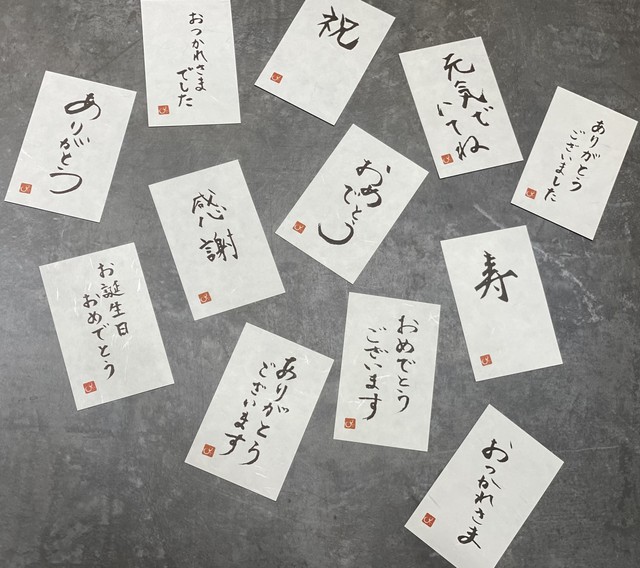 おつかれさま
でした
祝
元気で
いてね
ありがとう
ありがとう
ございました
感謝
おめ
でとう
寿
お誕生日
おめでとう
ありがとう
ございます
おめでとう
ございます
おつかれさま